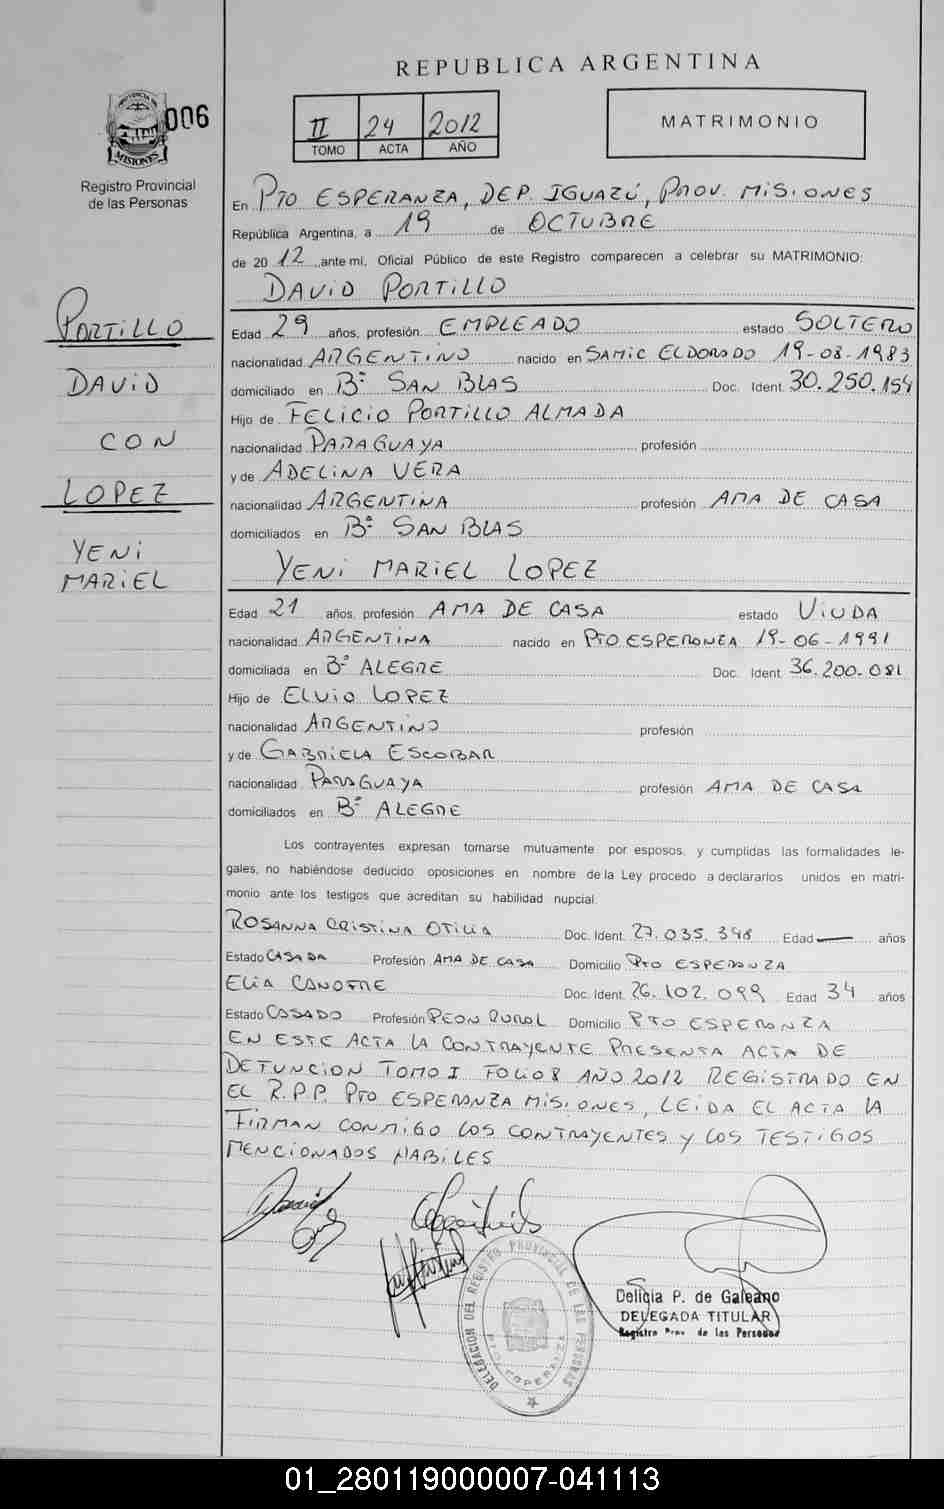 REPUBLICA ARGENTINA
PROVINCIA DE
MISIONES
006
Registro Provincial
de las Personas
II 24 2012
TOMO ACTA AÑO
MATRIMONIO
PORTILLO
DAVID
CON
LOPEZ
YENI
MARIEL
En PTO ESPERANZA, DEP. IGUAZÚ, PROV. MISIONES
República Argentina, a 19 de OCTUBRE
de 2012, ante mi, Oficial Público de este Registro comparecen a celebrar su MATRIMONIO:
DAVID PORTILLO
Edad 29 años, profesión EMPLEADO estado SOLTERO
nacionalidad ARGENTINO nacido en SAMIC ELDORADO 19-08-1983
domiciliado en Bº SAN BLAS Doc. Ident. 30.250.154
Hijo de FELICIO PORTILLO ALMADA
nacionalidad PARAGUAYA profesión
y de ADELINA VERA
nacionalidad ARGENTINA profesión AMA DE CASA
domiciliados en Bº SAN BLAS
YENI MARIEL LOPEZ
Edad 21 años, profesión AMA DE CASA estado VIUDA
nacionalidad ARGENTINA nacido en PTO ESPERANZA 19-06-1991
domiciliada en Bº ALEGRE Doc. Ident. 36.200.081
Hijo de ELVIO LOPEZ
nacionalidad ARGENTINO profesión
y de GABRIELA ESCOBAR
nacionalidad PARAGUAYA profesión AMA DE CASA
domiciliados en Bº ALEGRE
Los contrayentes expresan tomarse mutuamente por esposos, y cumplidas las formalidades le-
gales, no habiéndose deducido oposiciones en nombre de la Ley procedo a declararlos unidos en matri-
monio ante los testigos que acreditan su habilidad nupcial.
ROSANNA CRISTINA OTILIA Doc. Ident. 27.035.348 Edad — años
Estado CASADA Profesión AMA DE CASA Domicilio PTO ESPERANZA
ELIA CANOFRE Doc. Ident. 26.102.099 Edad 34 años
Estado CASADO Profesión PEON RURAL Domicilio PTO ESPERANZA
EN ESTE ACTA LA CONTRAYENTE PRESENTA ACTA DE
DEFUNCION TOMO I FOLIO 8 AÑO 2012 REGISTRADO EN
EL R.P.P. PTO ESPERANZA MISIONES, LEIDA EL ACTA LA
FIRMAN CONMIGO LOS CONTRAYENTES Y LOS TESTIGOS
MENCIONADOS HABILES
DELEGACION DEL REGISTRO PROVINCIAL DE LAS PERSONAS
PTO. ESPERANZA
Deligia P. de Galeano
DELEGADA TITULAR
Registro Prov. de las Personas
01_280119000007-041113